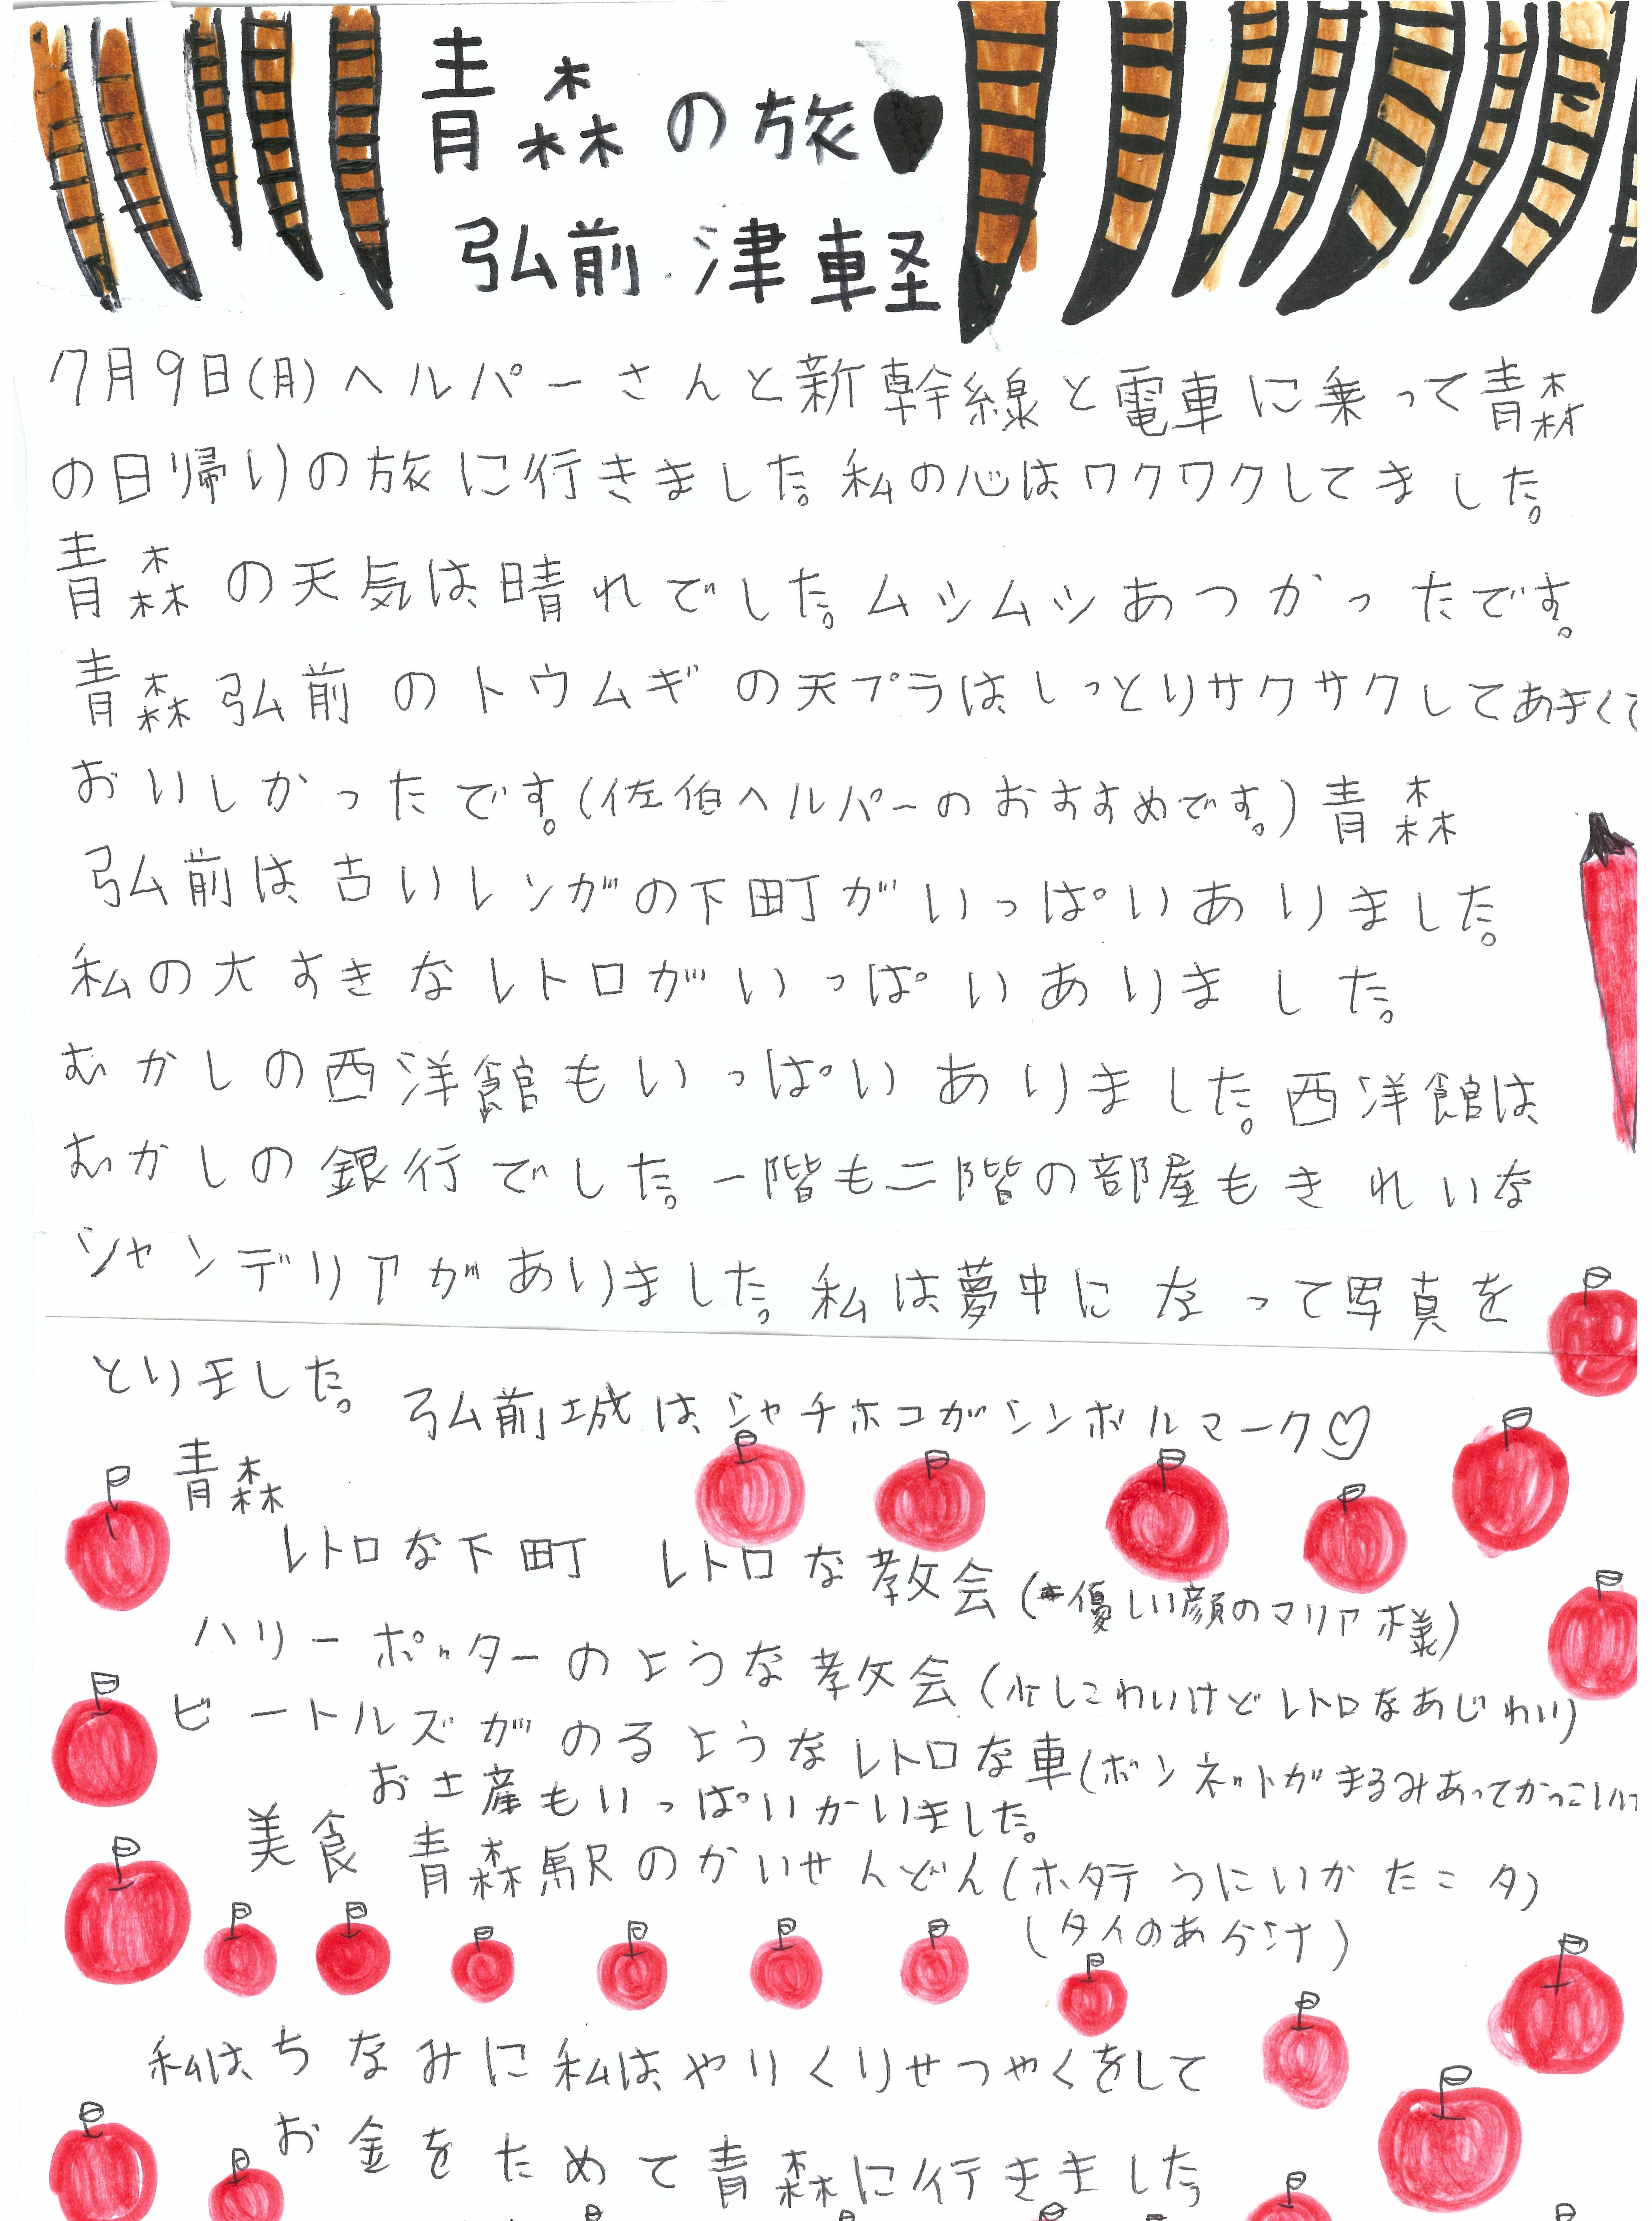 青森の旅♥
弘前 津軽
7月9日(月)ヘルパーさんと新幹線と電車に乗って青森
の日帰りの旅に行きました。私の心はワクワクしてました。
青森の天気は晴れでした。ムシムシあつかったです。
青森弘前のトウムギの天プラはしっとりサクサクしてあきくて
おいしかったです。(佐伯ヘルパーのおすすめです。)青森
弘前は古いレンガの下町がいっぱいありました。
私の大すきなレトロがいっぱいありました。
むかしの西洋館もいっぱいありました。西洋館は
むかしの銀行でした。一階も二階の部屋もきれいな
シャンデリアがありました。私は夢中になって写真を
とりました。弘前城はシャチホコがシンボルマーク♡
青森
レトロな下町 レトロな教会(*優しい顔のマリア様)
ハリーポッターのような教会(少しこわいけどレトロなあじわい)
ビートルズがのるようなレトロな車(ボンネットがまるみあってかっこいい
お土産もいっぱいかいました。
美食 青森駅のかいせんどん(ホタテ うに いか たこ タ)
(タイのあら汁)
私はちなみに私はやりくりせつやくをして
お金をためて青森に行きました。